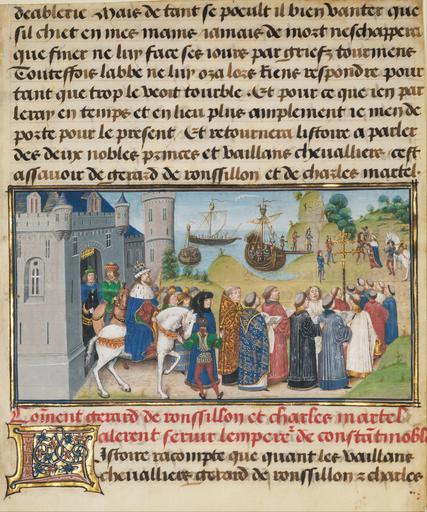 deablerie. Mais de tant se poeult il bien vanter que
sil chiet en mes mains iamais de mort neschappera
que finer ne luy face ses iours par griefz tourmens
Touteffois labbe ne luy oza lors riens respondre pour
tant que trop le veoit tourble. Et pour ce que ien par
leray en temps et en lieu plus amplement ie men de
porte pour le present. Et retournera listoire a parler
des deux nobles princes et vaillans chevalliers cest
assavoir de gerard de roussillon et de charles martel.
Coment gerard de roussillon et charles martel
alerent servir lempere de constātinoble
Istoire racompte que quant les vaillans
chevalliers gerard de roussillon z charles